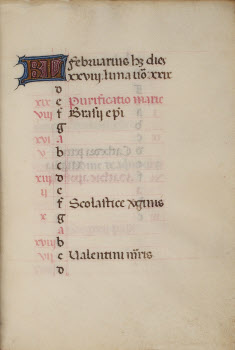 KL Februarius hz dies
xxviij. luna uo xxix
d
xix e Purificatio marie
viij f Blasij epi
g
xvi a
v b
c
xiij d
ij e
f Scolastice Xginis
x g
a
xviij b
vij c Ualentini mris
d